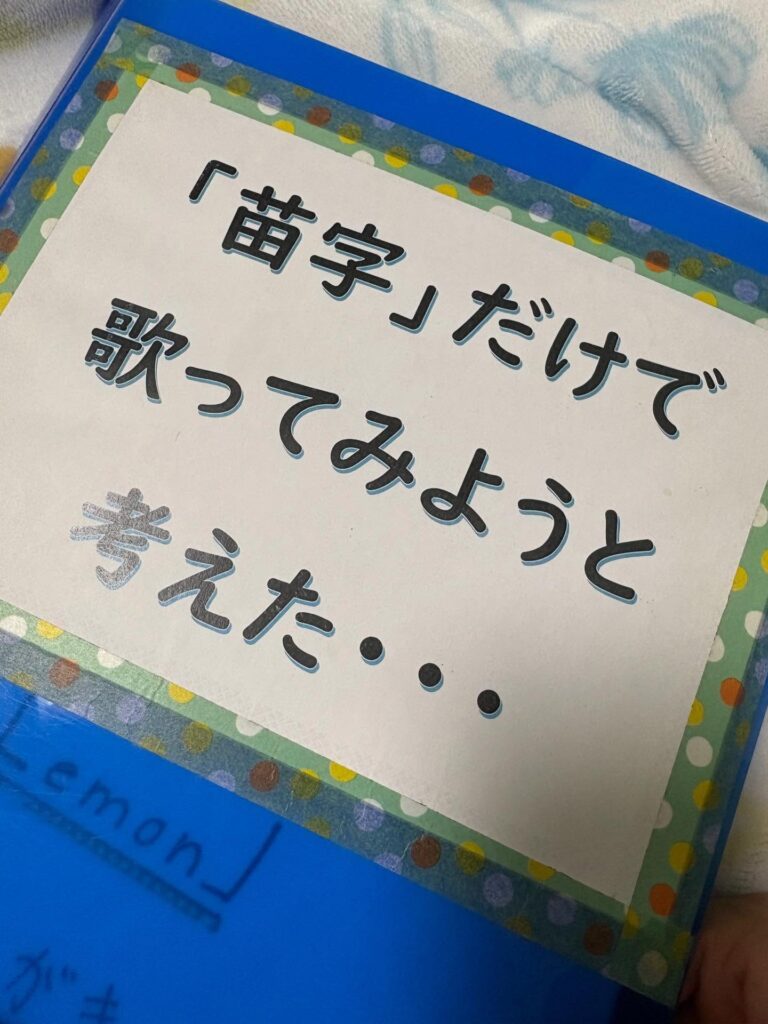 「苗字」だけで
歌ってみようと
考えた・・・
Lemon」
がき